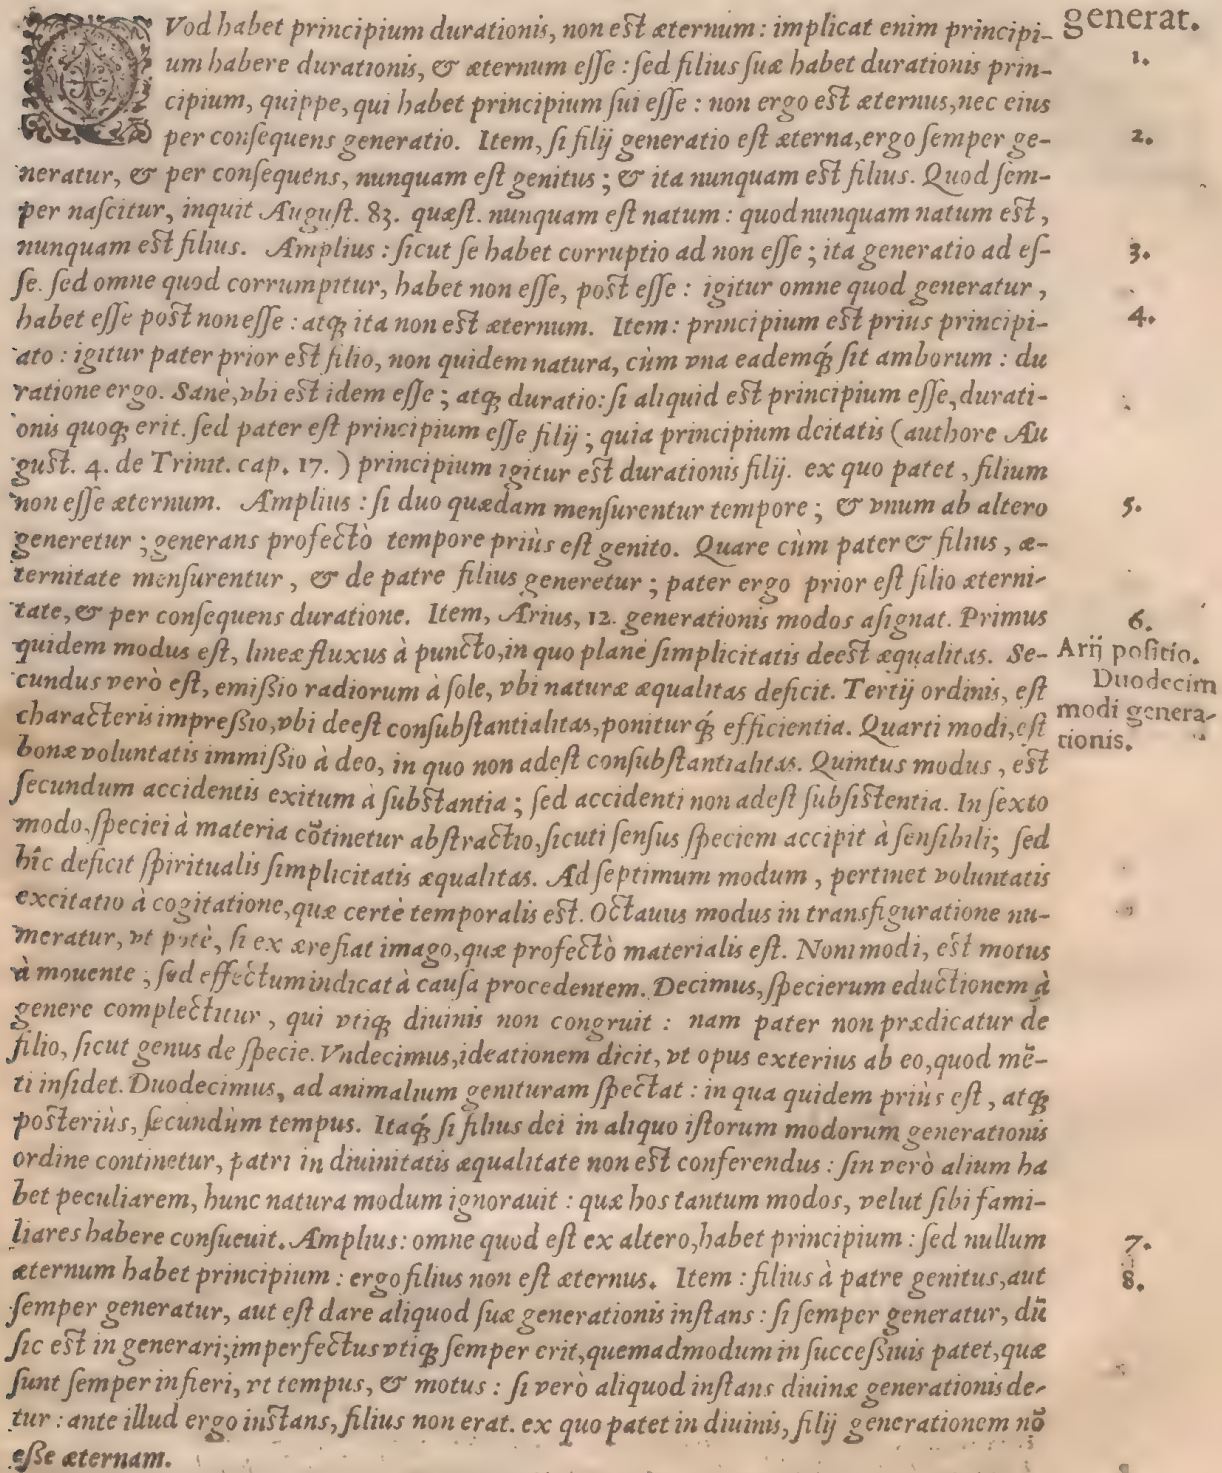 generat.
QVod habet principium durationis, non est æternum: implicat enim principi-
um habere durationis, & æternum esse: sed filius suæ habet durationis prin-
1.
cipium, quippe, qui habet principium sui esse: non ergo est æternus, nec eius
per consequens generatio. Item, si filij generatio est æterna, ergo semper ge-
2.
neratur, & per consequens, nunquam est genitus; & ita nunquam est filius. Quod sem-
per nascitur, inquit August. 83. quæst. nunquam est natum: quod nunquam natum est,
nunquam est filius. Amplius: sicut se habet corruptio ad non esse; ita generatio ad es-
3.
se. sed omne quod corrumpitur, habet non esse, post esse: igitur omne quod generatur,
habet esse post non esse: atq; ita non est æternum. Item: principium est prius principi-
4.
ato: igitur pater prior est filio, non quidem natura, cùm vna eademq́; sit amborum: du
ratione ergo. Sanè, vbi est idem esse; atq; duratio: si aliquid est principium esse, durati-
onis quoq; erit. sed pater est principium esse filij; quia principium deitatis (authore Au
gust. 4. de Trinit. cap. 17.) principium igitur est durationis filij. ex quo patet, filium
non esse æternum. Amplius: si duo quædam mensurentur tempore; & vnum ab altero
5.
generetur; generans profectò tempore priùs est genito. Quare cùm pater & filius, æ-
ternitate mensurentur, & de patre filius generetur; pater ergo prior est filio æterni-
tate, & per consequens duratione. Item, Arius, 12. generationis modos asignat. Primus
6.
quidem modus est, lineæ fluxus à puncto, in quo planè simplicitatis deest æqualitas. Se-
Arij positio.
cundus verò est, emißio radiorum à sole, vbi naturæ æqualitas deficit. Tertij ordinis, est
Duodecim
characteris impreßio, vbi deest consubstantialitas, ponitur q́; efficientia. Quarti modi, est
modi genera-
bonæ voluntatis immißio à deo, in quo non adest consubstantialitas. Quintus modus, est
tionis.
secundum accidentis exitum à substantia; sed accidenti non adest subsistentia. In sexto
modo, speciei à materia cõtinetur abstractio, sicuti sensus speciem accipit à sensibili; sed
hîc deficit spiritualis simplicitatis æqualitas. Ad septimum modum, pertinet voluntatis
excitatio à cogitatione, quæ certè temporalis est. Octauus modus in transfiguratione nu-
meratur, vt potè, si ex ære fiat imago, quæ profectò materialis est. Noni modi, est motus
à mouente; sed effectum indicat à causa procedentem. Decimus, specierum eductionem à
genere complectitur, qui vtiq; diuinis non congruit: nam pater non prædicatur de
filio, sicut genus de specie. Vndecimus, ideationem dicit, vt opus exterius ab eo, quod mẽ-
ti insidet. Duodecimus, ad animalium genituram spectat: in qua quidem priùs est, atq;
posteriùs, secundùm tempus. Itaq́; si filius dei in aliquo istorum modorum generationis
ordine continetur, patri in diuinitatis æqualitate non est conferendus: sin verò alium ha
bet peculiarem, hunc natura modum ignorauit: quæ hos tantum modos, velut sibi fami-
liares habere consueuit. Amplius: omne quod est ex altero, habet principium: sed nullum
7.
æternum habet principium: ergo filius non est æternus. Item: filius à patre genitus, aut
8.
semper generatur, aut est dare aliquod suæ generationis instans: si semper generatur, dũ
sic est in generari; imperfectus vtiq; semper erit, quemadmodum in succeßiuis patet, quæ
sunt semper in fieri, vt tempus, & motus: si verò aliquod instans diuinæ generationis de-
tur: ante illud ergo instans, filius non erat. ex quo patet in diuinis, filij generationem nõ
eße æternam.